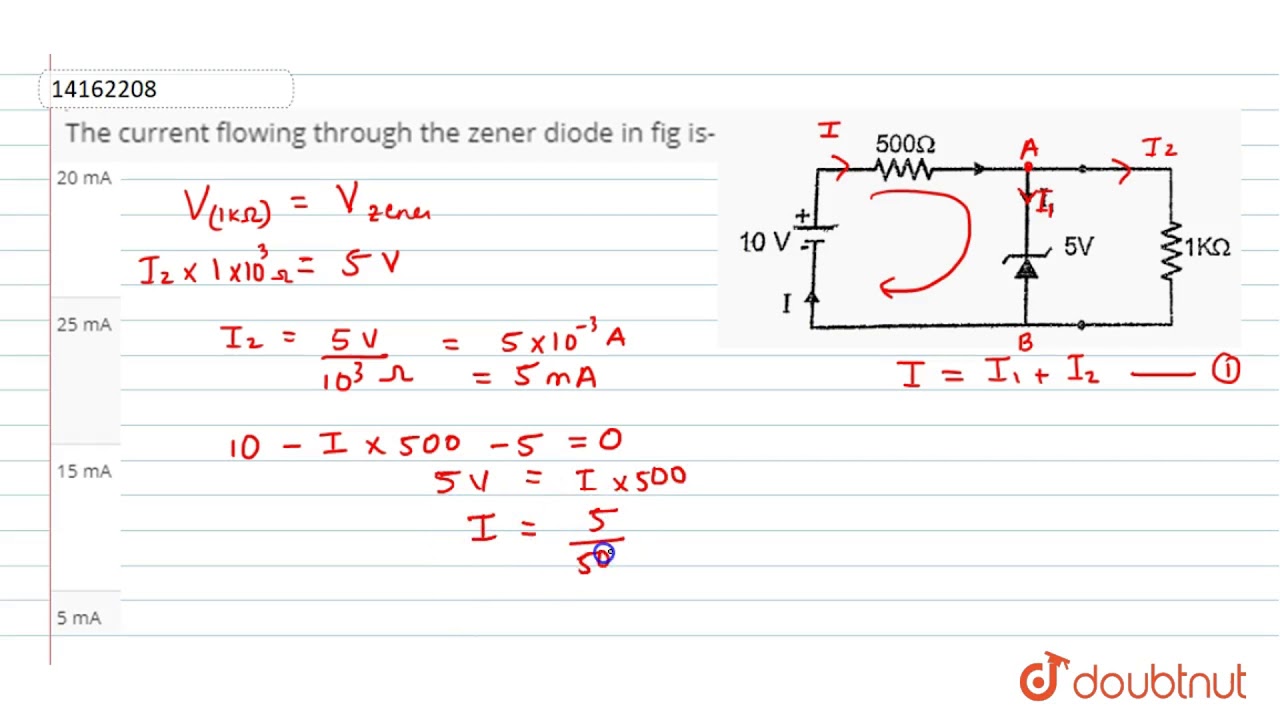 14162208
The current flowing through the zener diode in fig is-
20 mA
25 mA
15 mA
5 mA
V(1KΩ) = Vzener
I2 × 1 × 10³ Ω = 5 V
I2 = 5 V / 10³ Ω = 5 × 10⁻³ A
= 5 mA
10 - I × 500 - 5 = 0
5 V = I × 500
I = 5 / 50
I
500Ω
A
I2
I1
+
10 V
-
5V
1KΩ
I
B
I = I1 + I2 — ①
doubtnut